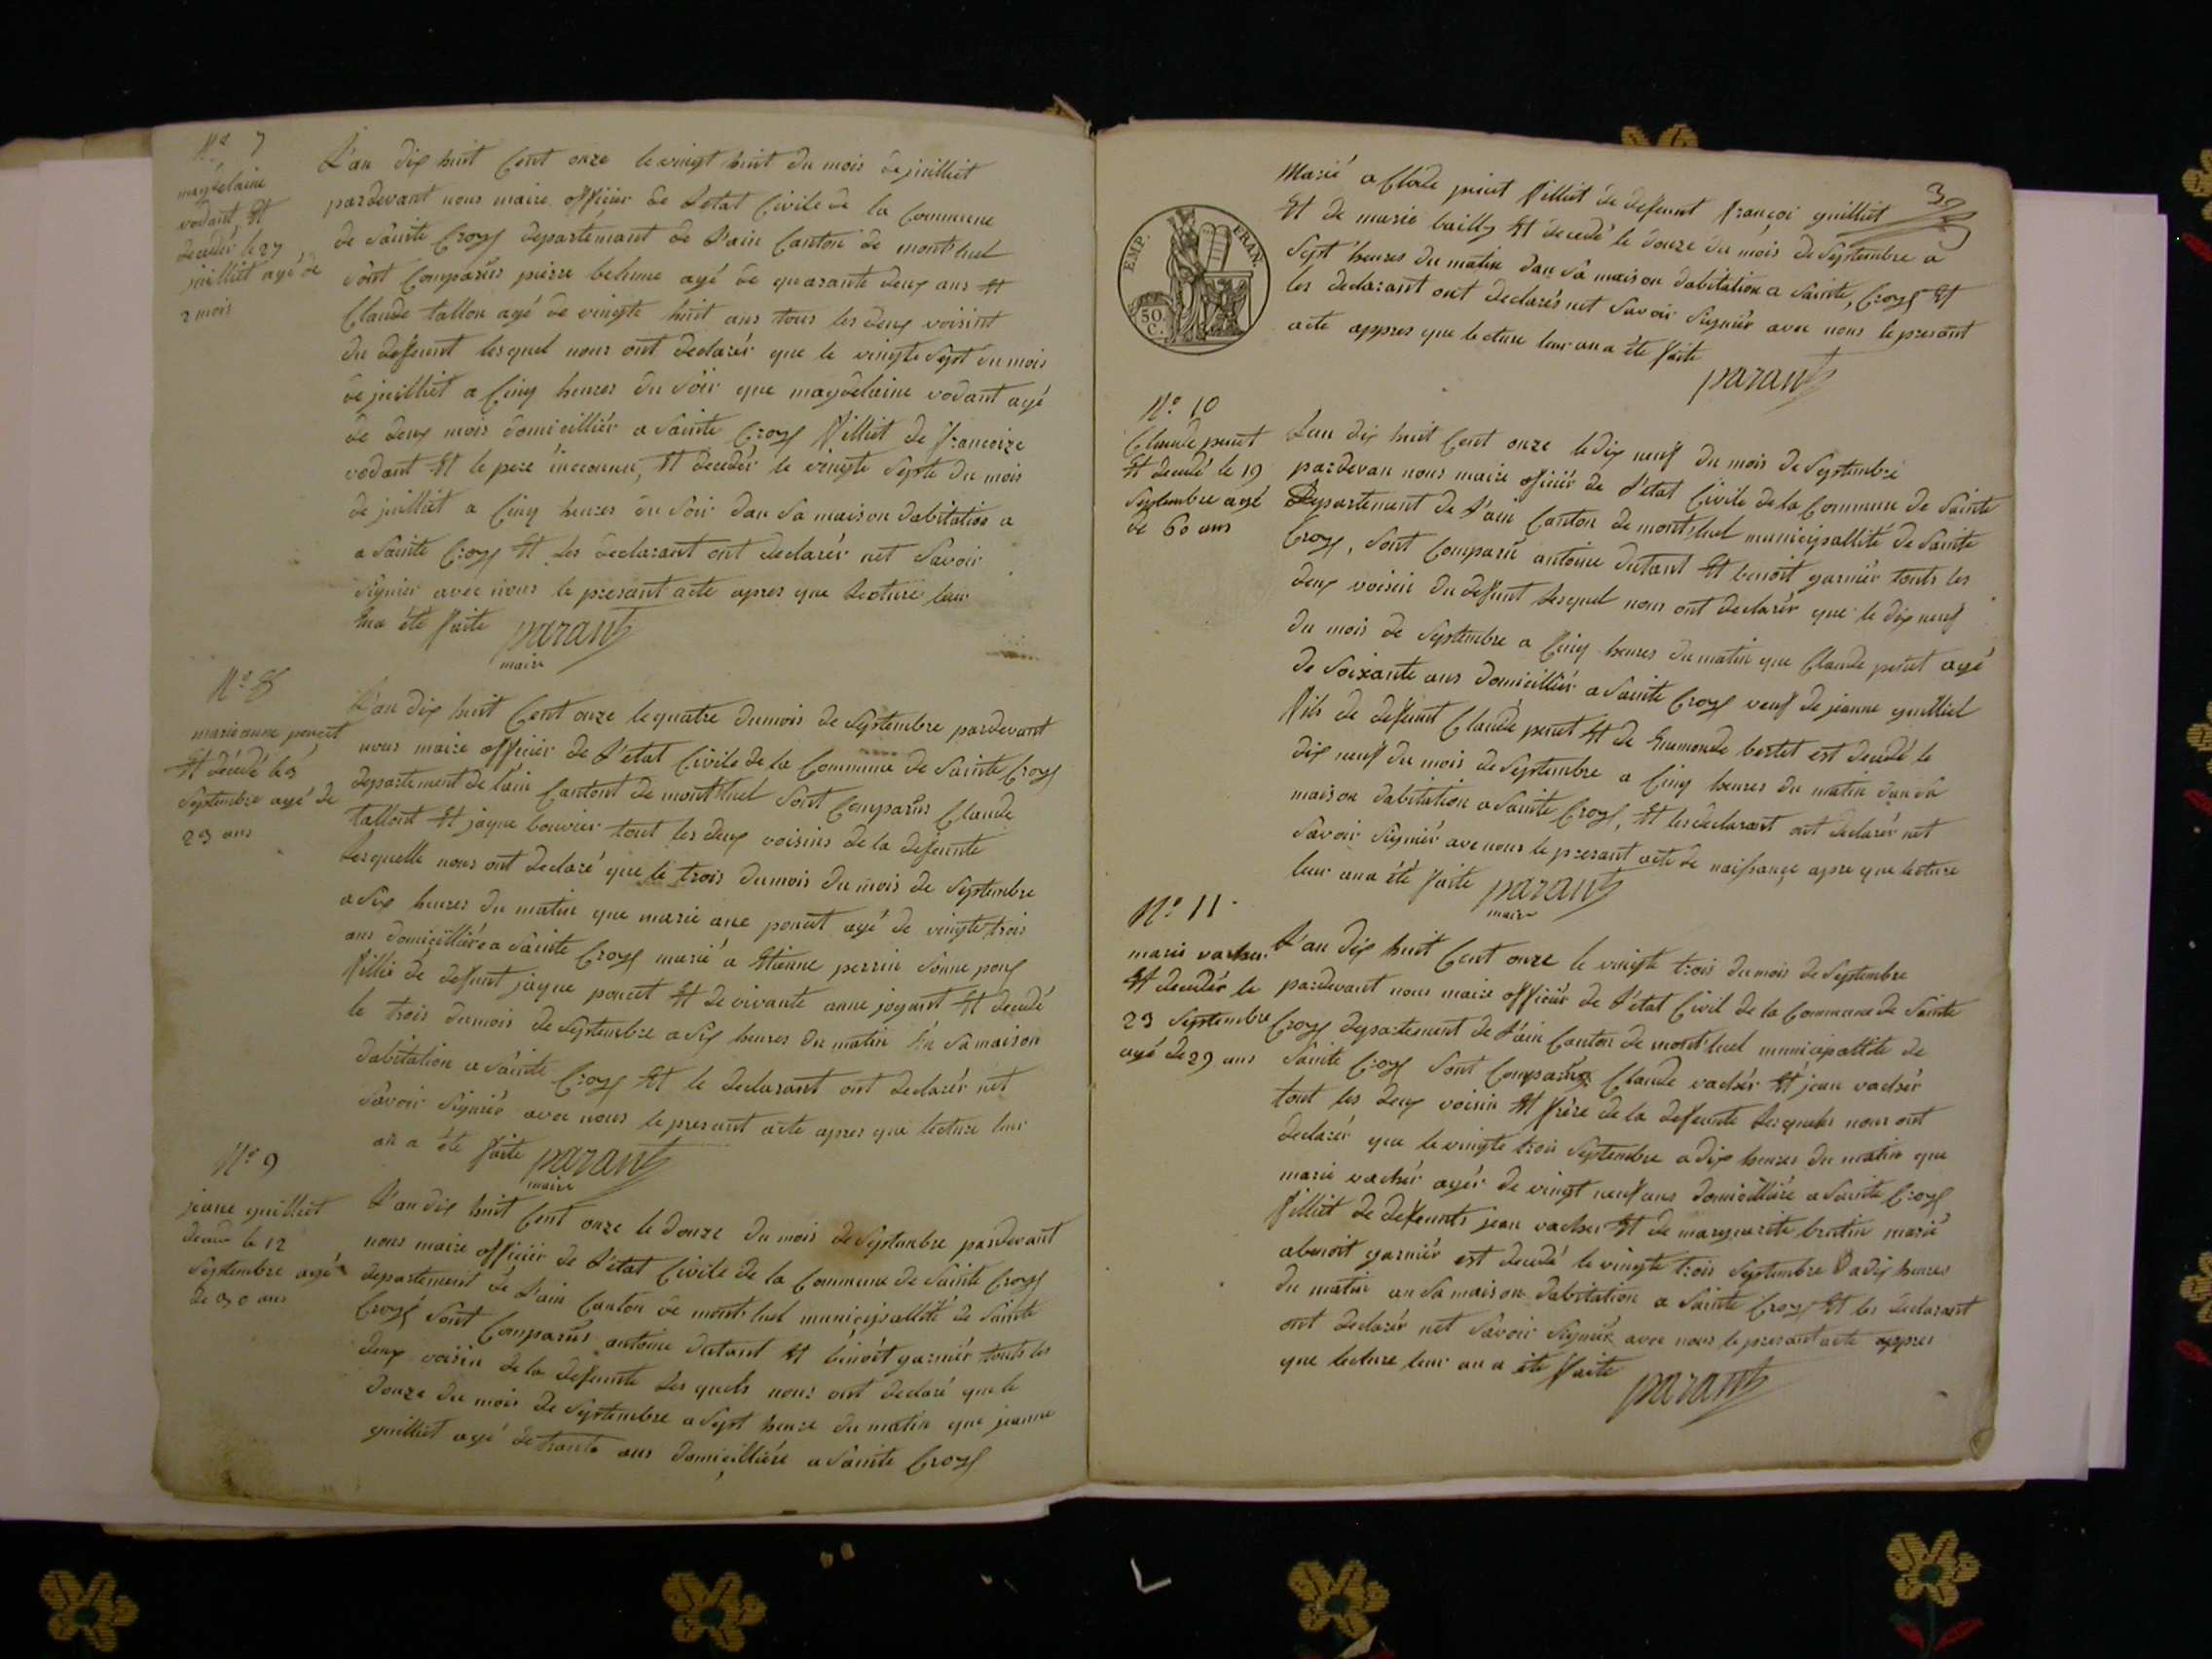 N° 7
magdelaine
vodant Et
decedér le 27
juilliet agé de
2 mois
L'an dix huit Cent onze le vingt huit du mois de juilliet
pardevant nous maire officier de L'etat Civile de la Commune
de Sainte Croyx departemant de L'ain Canton de montluel
sont Comparüs pierre behme agé de quarante deux ans Et
Claude tallon agé de vingte huit ans tous les deux voisint
du deffeunt lesquel nous ont declarér que le vingte Sept du mois
de juilliet a Cinq heures du Soir que magdelaine vodant agé
de deux mois domicilliér a Sainte Croyx filliet de francoize
vodant Et le pere inconnu, Et decedér le vingte Septe du mois
de juilliet a Cinq heures du Soir dan Sa maison dabitation a
a Sainte Croyx Et Les declarant ont declarér net Savoir
Signier avec nous le presant acte apres que Lecture leur
Ena été faite parant
maire
N° 8
marie anne poncet
Et décédé le 3
Septembre agé de
23 ans
L'an dix huit Cent onze le quatre du mois de Septembre pardevant
nous maire officiér de L'etat Civile de la Commune de Sainte Croyx
departement de l'ain Cantont de montluel Sont Comparüs Claude
tallont Et jaque bouvier tout les deux voisins de la defeunte
Lesquelle nous ont declaré que le trois du mois du mois de Septembre
a Six heures du matin que marie ane poncet agé de vingte trois
ans domicilliére a Sainte Croyx marié a Etienne perrin donne poux
fillie de defunt jaque poncet Et de vivante anne joyant Et decedé
le trois du mois de Septembre a Six heures du matin En Sa maison
dabitation a Sainte Croyx Et le declarant ont declarér net
Savoir Signiér avec nous le presant acte apres que lecture leur
an a été faite parant
maire
N° 9
jeane guilliet
decedé le 12
Septembre agé
de 30 ans
L'an dix huit Cent onze le douze du mois de Septembre pardevant
nous maire officiér de L'état Civile de la Commune de Sainte Croyx
departement de L'ain Canton de montluel municipallité de Sainte
Croyx Sont Comparüs antoine dutant Et benoit garniér touts les
deux voisin de la defeunte Les quels nous ont declaré que le
douze du mois de Septembre a Sept heure du matin que jeanne
guilliet agé de trante ans domicilliére a Sainte Croyx
3
Marié a Claude peniet filliet de defeunt françoi guilliet
Et de marie bailly Et decedé le douze du mois de Septembre a
Sept heures du matin dan Sa maison dabitation a Sainte Croyx Et
les declarant ont declarér net Savoir Signiér avec nous le presant
acte appres que lecture leur an a été faite
parant
EMP. FRAN.
50
C.
N° 10
Claude penet
Et decedé le 19
Septembre agé
de 60 ans
Lan dix huit Cent onze le dix neuf du mois de Septembre
pardevan nous maire officiér de L'etat Civile de la Commune de Sainte
Departement de L'ain Canton de montluel municipallité de Sainte
Croyx, Sont Comparü antoine dutant Et benoit garniér touts les
deux voisin du defunt Lesquel nous ont declarér que le dix neuf
du mois de Septembre a Cinq heures du matin que Claude penet agé
de Soixante ans domicilliér a Sainte Croyx veuf de jeanne guilliel
fils de defeunt Claude penet Et de Enemonde bertet est decedé le
dix neuf du mois de Septembre a Cinq heures du matin dan Sa
maison dabitation a Sainte Croyx, Et les declarant ont declarér net
Savoir Signiér ave nous le presant acte de naissance apre que lecture
leur ana été faite parant
maire
N° 11
marie vacher
Et decedér le
23 Septembre
agé de 29 ans
L'an dix huit Cent onze le vingte trois du mois de Septembre
pardevant nous maire officiér de L'état Civil de la Commune de Sainte
Croyx departement de L'ain Canton de montluel municipallité de
Sainte Croyx Sont Comparüs Claude vachér Et jean vachér
tout les deux voisin Et frére de la defeunte Lesquels nous ont
declarér que le vingte trois Septembre a dix heures du matin que
marie vachér agér de vingt neuf ans domicilliére a Sainte Croyx
filliet de defeunts jean vacher Et de marguerite bertin marié
abenoit garniér est decedé le vingte trois Septembre a dix heures
du matin an Sa maison dabitation a Sainte Croyx Et les declarant
ont declarér net Savoir Signiér avec nous le presant acte appres
que lecture leur an a été faite
parant